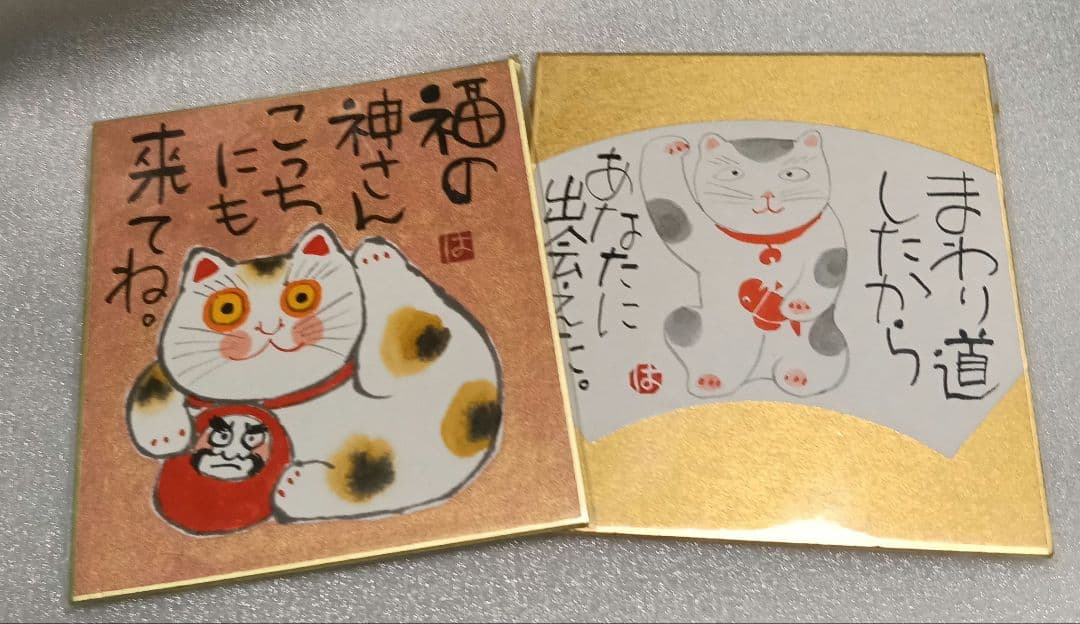 福の
神さん
こっち
にも
来てね。
は
まわり道
したから
あなたに
出会えた。
は